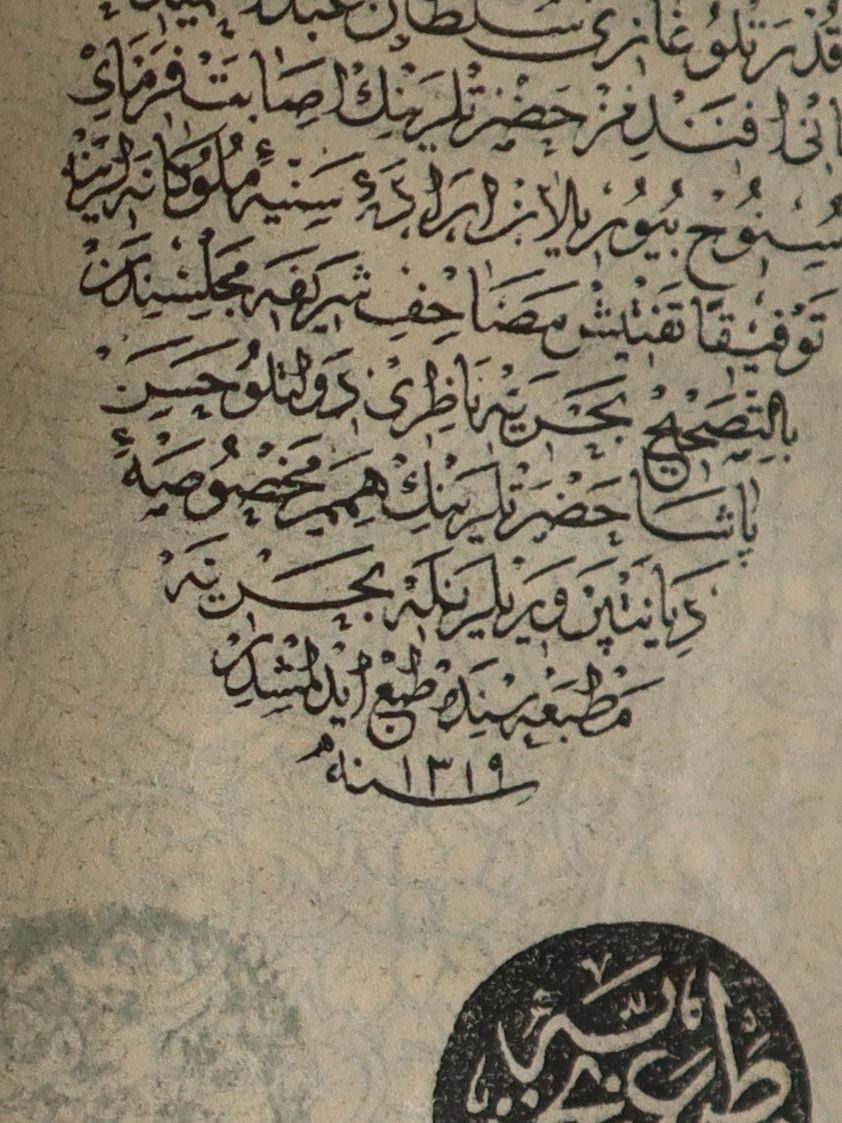 قدرتلو غازى سلطان عبد
افندمز حضرتلرينك اصابت فرماى
سنوح بيوريلان اراده سنيهٔ ملوكانه لرينه
توفيقا تفتيش مصاحف شريفه مجلسيندن
بالتصحيح بحريه ناظرى دولتلو حسن
پاشا حضرتلرينك همم مخصوصهٔ
ديانتپرويريلريله بحريه
مطبعه سنده طبع ايدلمشدر
سنه ١٣١٩